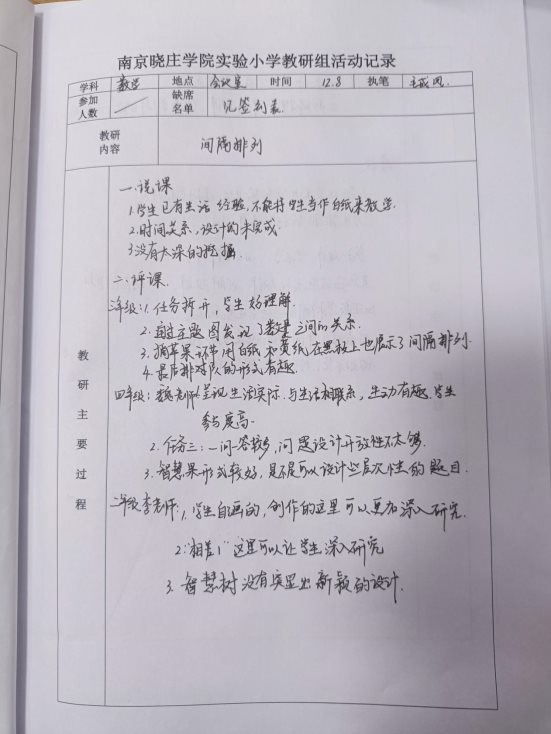 南京晓庄学院实验小学教研组活动记录
学科 数学 地点 会议室 时间 12.8 执笔
参加人数 缺席名单 见签到表
教研内容 间隔排列
教研主要过程
一.说课
1.学生已有生活经验,不能将学生当作白纸来教学.
2.时间关系,设计的未完成.
3.没有太深的挖掘.
二.评课.
三年级:1.任务拆开,学生好理解
2.通过主题图发现了数量之间的关系.
3.摘苹果环节用白纸和黄纸,在黑板上也展示了间隔排列.
4.最后排对队的形式有趣.
四年级:魏老师:呈现生活实际.与生活相联系,生动有趣.学生
参与度高.
2.任务三:一问一答较多,问题设计开放性不太够.
3.智慧果形式较好,是不是可以设计些层次性的题目.
二年级李老师:1.学生自画的,创作的这里可以更加深入研究.
2."相差1"这里可以让学生深入研究
3.智慧树没有突显出新颖的设计.